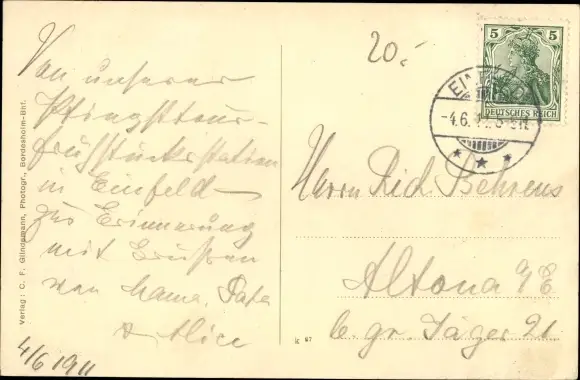 Von unserer
Pfingsttour-
frühstücksstation
in Einfeld
zur Erinnerung
mit Grüßen
von Mama, Papa
& Alice
4/6 1911
Verlag: C. F. Glindemann, Photogr., Bordesholm-Bhf.
20.-
5 5
DEUTSCHES REICH
EINFELD
-4.6.
Herrn Rich. Behrens
Altona a/E
b. gr. Jäger 21.
k 67